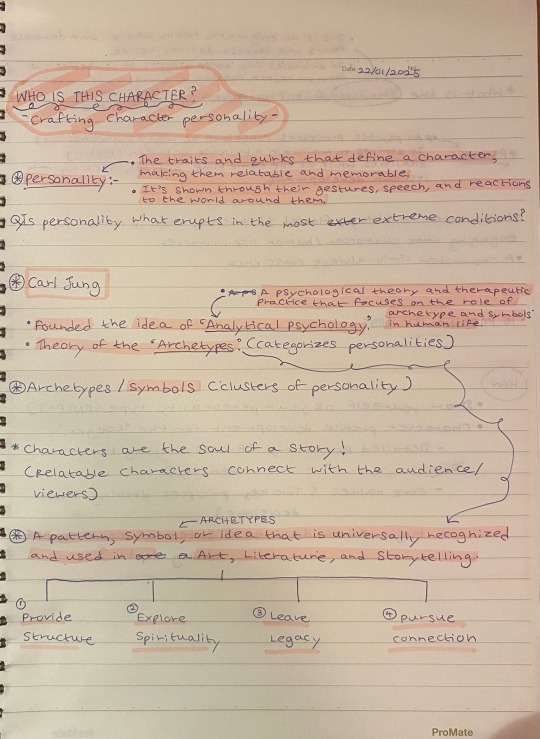 Date 22/01/2025
WHO IS THIS CHARACTER?
-Crafting Character personality-
• The traits and quirks that define a character,
making them relatable and memorable.
* Personality:-
• It's shown through their gestures, speech, and reactions
to the world around them.
Q Is personality what erupts in the most exter extreme conditions?
* Carl Jung
• A psychological theory and therapeutic
practice that focuses on the role of
archetype and symbols
in human life.
• Founded the idea of "Analytical psychology."
• Theory of the "Archetypes". (categorizes personalities)
* Archetypes / Symbols (clusters of personality)
* Characters are the soul of a story!
(Relatable characters connect with the audience/
viewers)
ARCHETYPES
* A pattern, Symbol, or idea that is universally recognized
and used in are a Art, Literature, and Storytelling.
① Provide
Structure
② Explore
Spirituality
③ Leave
Legacy
④ pursue
connection
ProMate